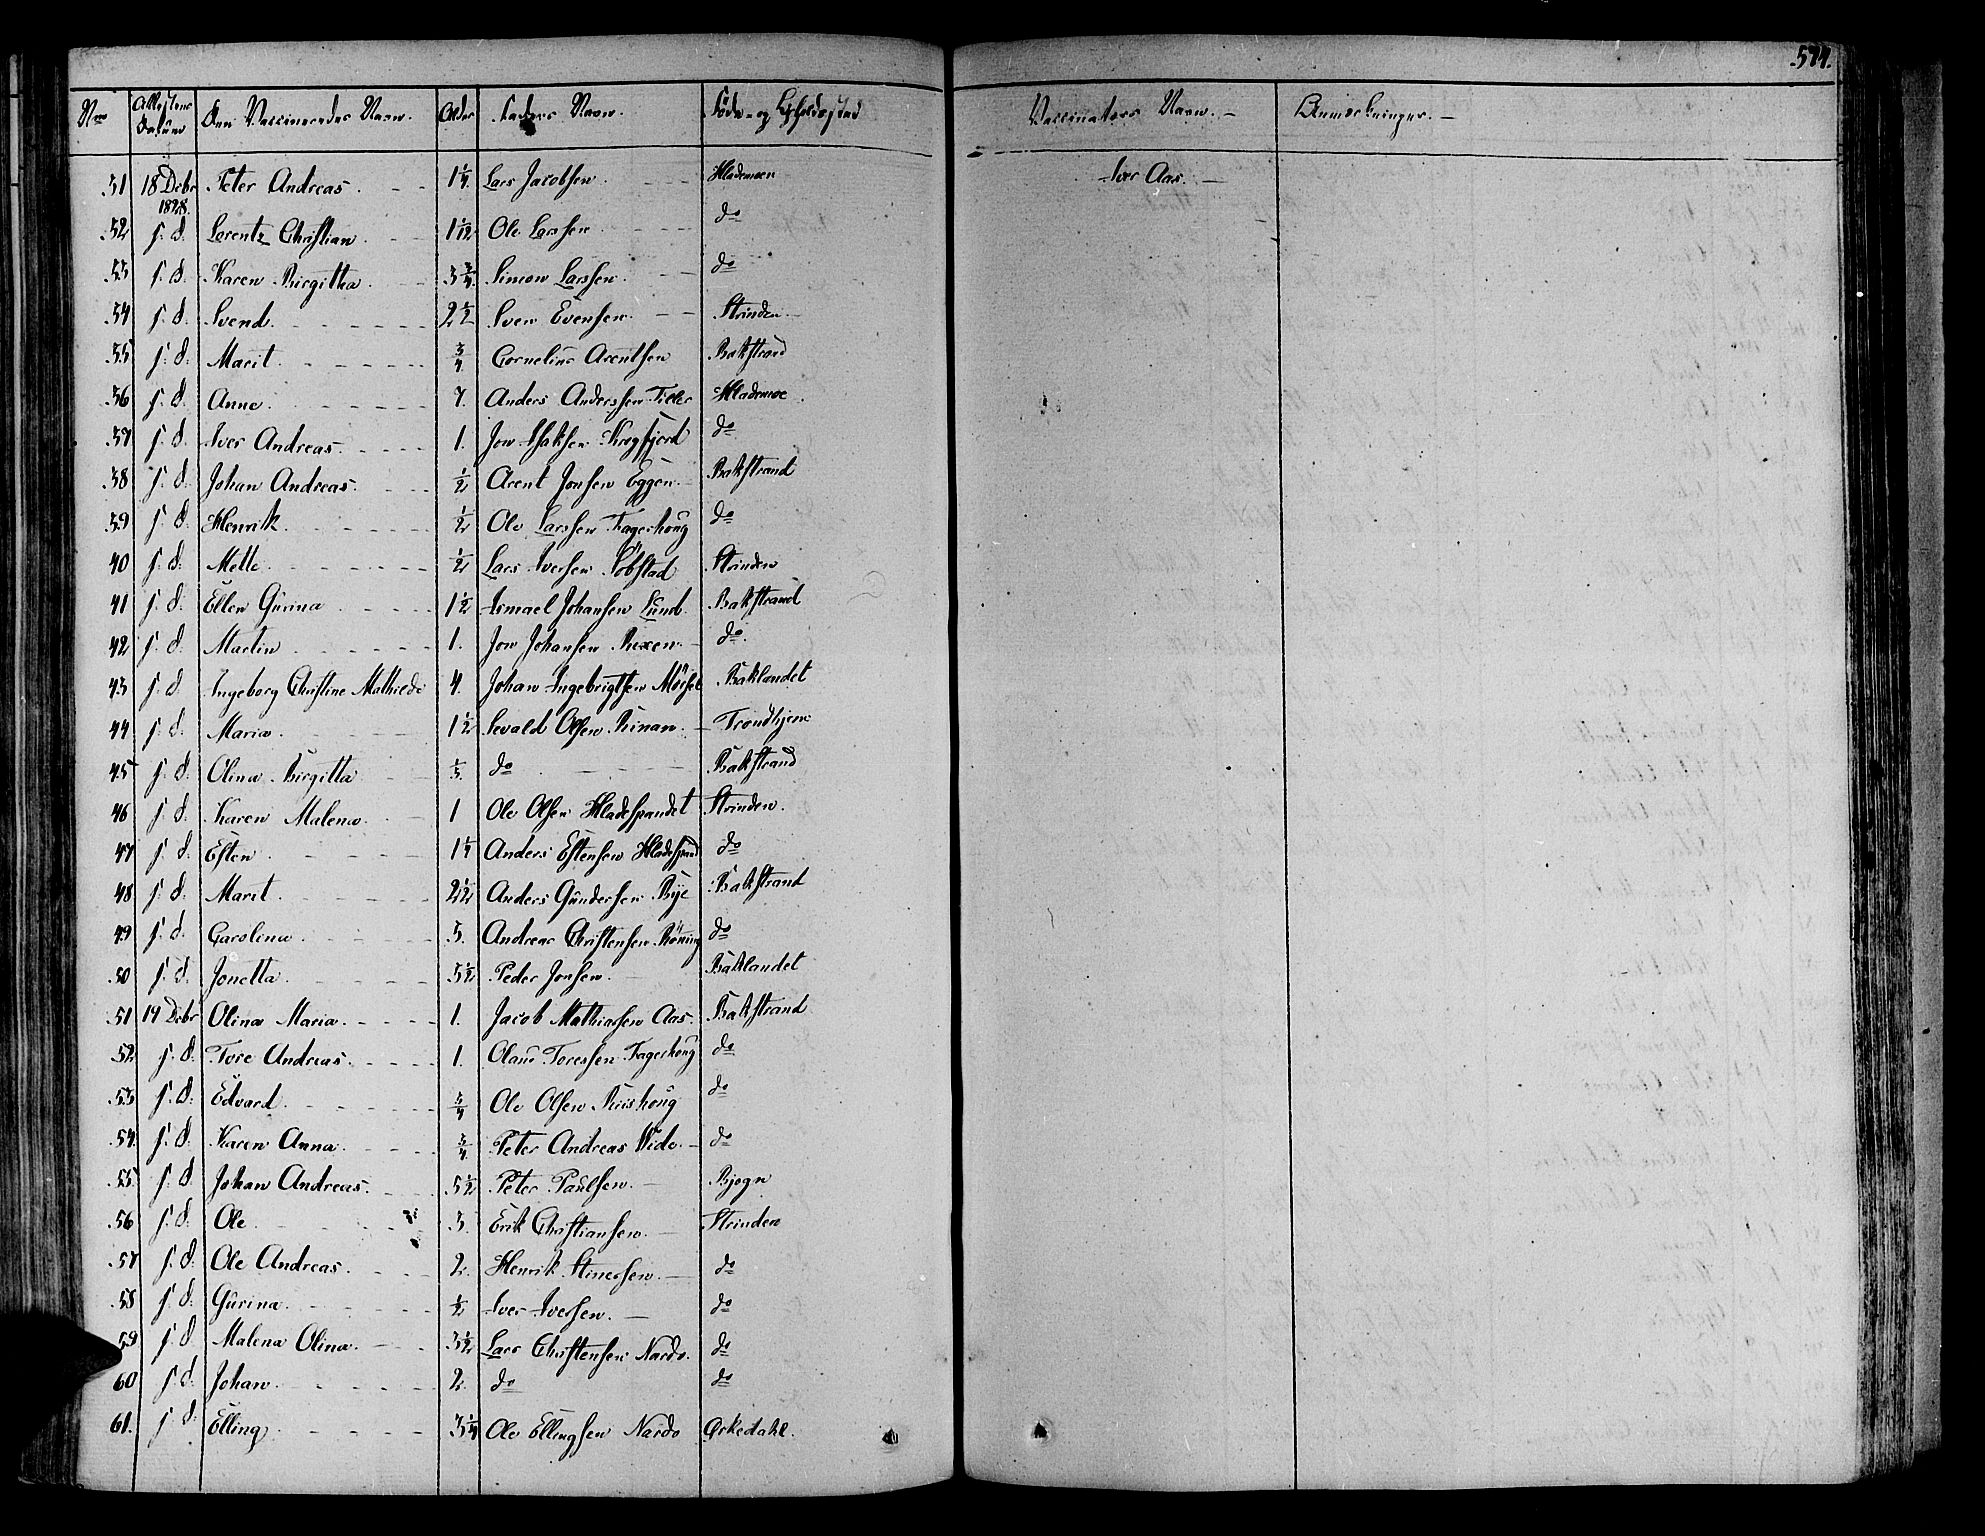 574.
No Attestens Datum Den Vaccineredes Navn. Alder Faders Navn. Føde- og Opholdssted Vaccinators Navn. Anmærkninger.
31 18 Decbr 1828. Peter Andreas 1¼ Lars Jacobsen Hlademoen Iver Aas.
32 s. d. Lorentz Christian 1 1/12 Ole Larssen do
33 s. d. Karen Birgitha 3¾ Simon Larssen do
34 s. d. Svend 2½ Sven Evensen Strinden
35 s. d. Marit ¾ Cornelius Arentsen Bakstrand
36 s. d. Anne 7 Anders Anderssen Tiller Hlademoe
37 s. d. Iver Andreas 1. Jon Isaksen Krogfjord do
38 s. d. Johan Andreas ½ Arent Jonsen Eggen Bakstrand
39 s. d. Henrik ½ Ole Larssen Fagerhoug do
40 s. d. Mette ½ Lars Iversen Söbstad Strinden
41 s. d. Ellen Gurina 1½ Ismael Johansen Lund Bakstrand
42 s. d. Martin 1. Jon Johansen do.
43 s. d. Ingeborg Christine Mathilde 4. Johan Ingebrigtsen Baklandet
44 s. d. Maria 1½ Sevald Olsen Rinan Trondhjem
45 s. d. Olina Birgitta do Bakstrand
46 s. d. Karen Malena 1 Ole Olsen Hladespandet Strinden.
47 s. d. Esten 1¼ Anders Estensen Hladespand do
48 s. d. Marit 2½ Anders Gundersen Rye Bakstrand
49 s. d. Carolina 5. Andreas Christensen Röning do
50 s. d. Jonetta 5½ Peder Jonsen Baklandet
51 19 Decbr Olina Maria 1. Jacob Mathiassen Aas Bakstrand
52 s. d. Tore Andreas 1. Olaus Toressen Fagerhoug do
53 s. d. Edvard ¾ Ole Olsen Riishoug do
54 s. d. Karen Anna ¾ Peter Andreas Wide do
55 s. d. Johan Andreas 5½ Peter Paulsen Bjogn
56 s. d. Ole 3. Erik Christiansen Strinden
57 s. d. Ole Andreas 2. Henrik Stinersen do
58 s. d. Gurina ½ Iver Iversen do
59 s. d. Malena Olina 3½ Lars Christensen Nardo. do
60 s. d. Johan 2. do do
61. s. d. Elling 3¼ Ole Ellingsen Nardo Orkedahl.